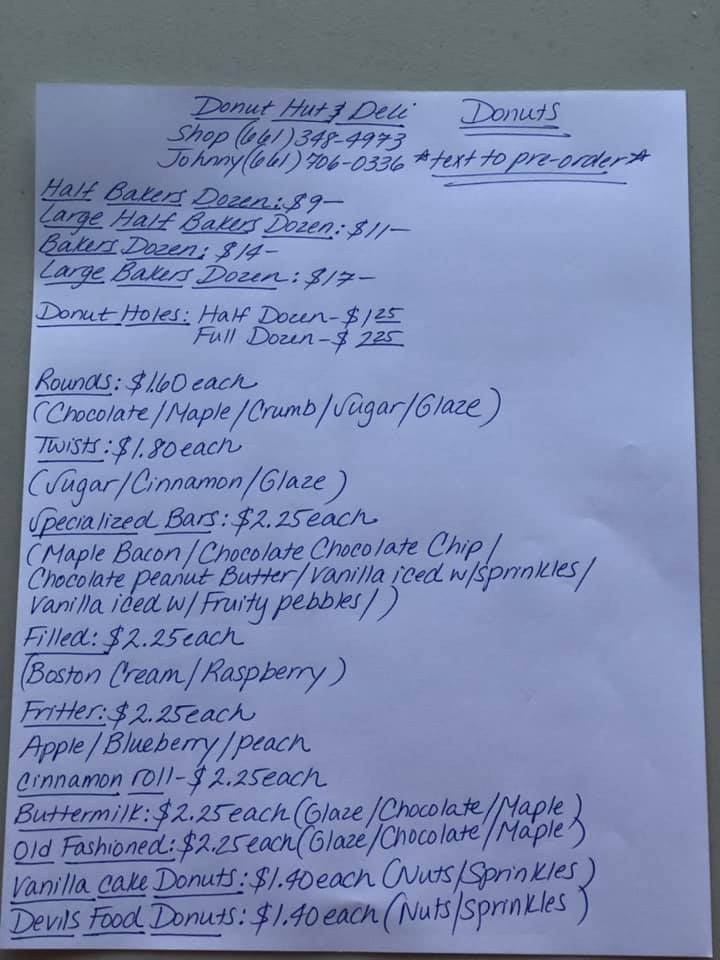 Donut Hut & Deli Donuts
Shop (661) 348-4973
Johnny (661) 706-0336 *text to pre-order*
Half Bakers Dozen: $9-
Large Half Bakers Dozen: $11-
Bakers Dozen: $14-
Large Bakers Dozen: $17-
Donut Holes: Half Dozen - $1 25
Full Dozen - $ 2 25
Rounds: $1.60 each
(Chocolate/Maple/Crumb/Sugar/Glaze)
Twists: $1.80 each
(Sugar/Cinnamon/Glaze)
Specialized Bars: $2.25 each
(Maple Bacon/Chocolate Chocolate Chip/
Chocolate peanut Butter/Vanilla iced w/sprinkles/
Vanilla iced w/Fruity pebbles/)
Filled: $2.25 each
(Boston Cream/Raspberry)
Fritter: $2.25 each
Apple/Blueberry/peach
Cinnamon roll - $2.25 each
Buttermilk: $2.25 each (Glaze/Chocolate/Maple)
Old Fashioned: $2.25 each (Glaze/Chocolate/Maple)
Vanilla cake Donuts: $1.40 each (Nuts/Sprinkles)
Devils Food Donuts: $1.40 each (Nuts/Sprinkles)